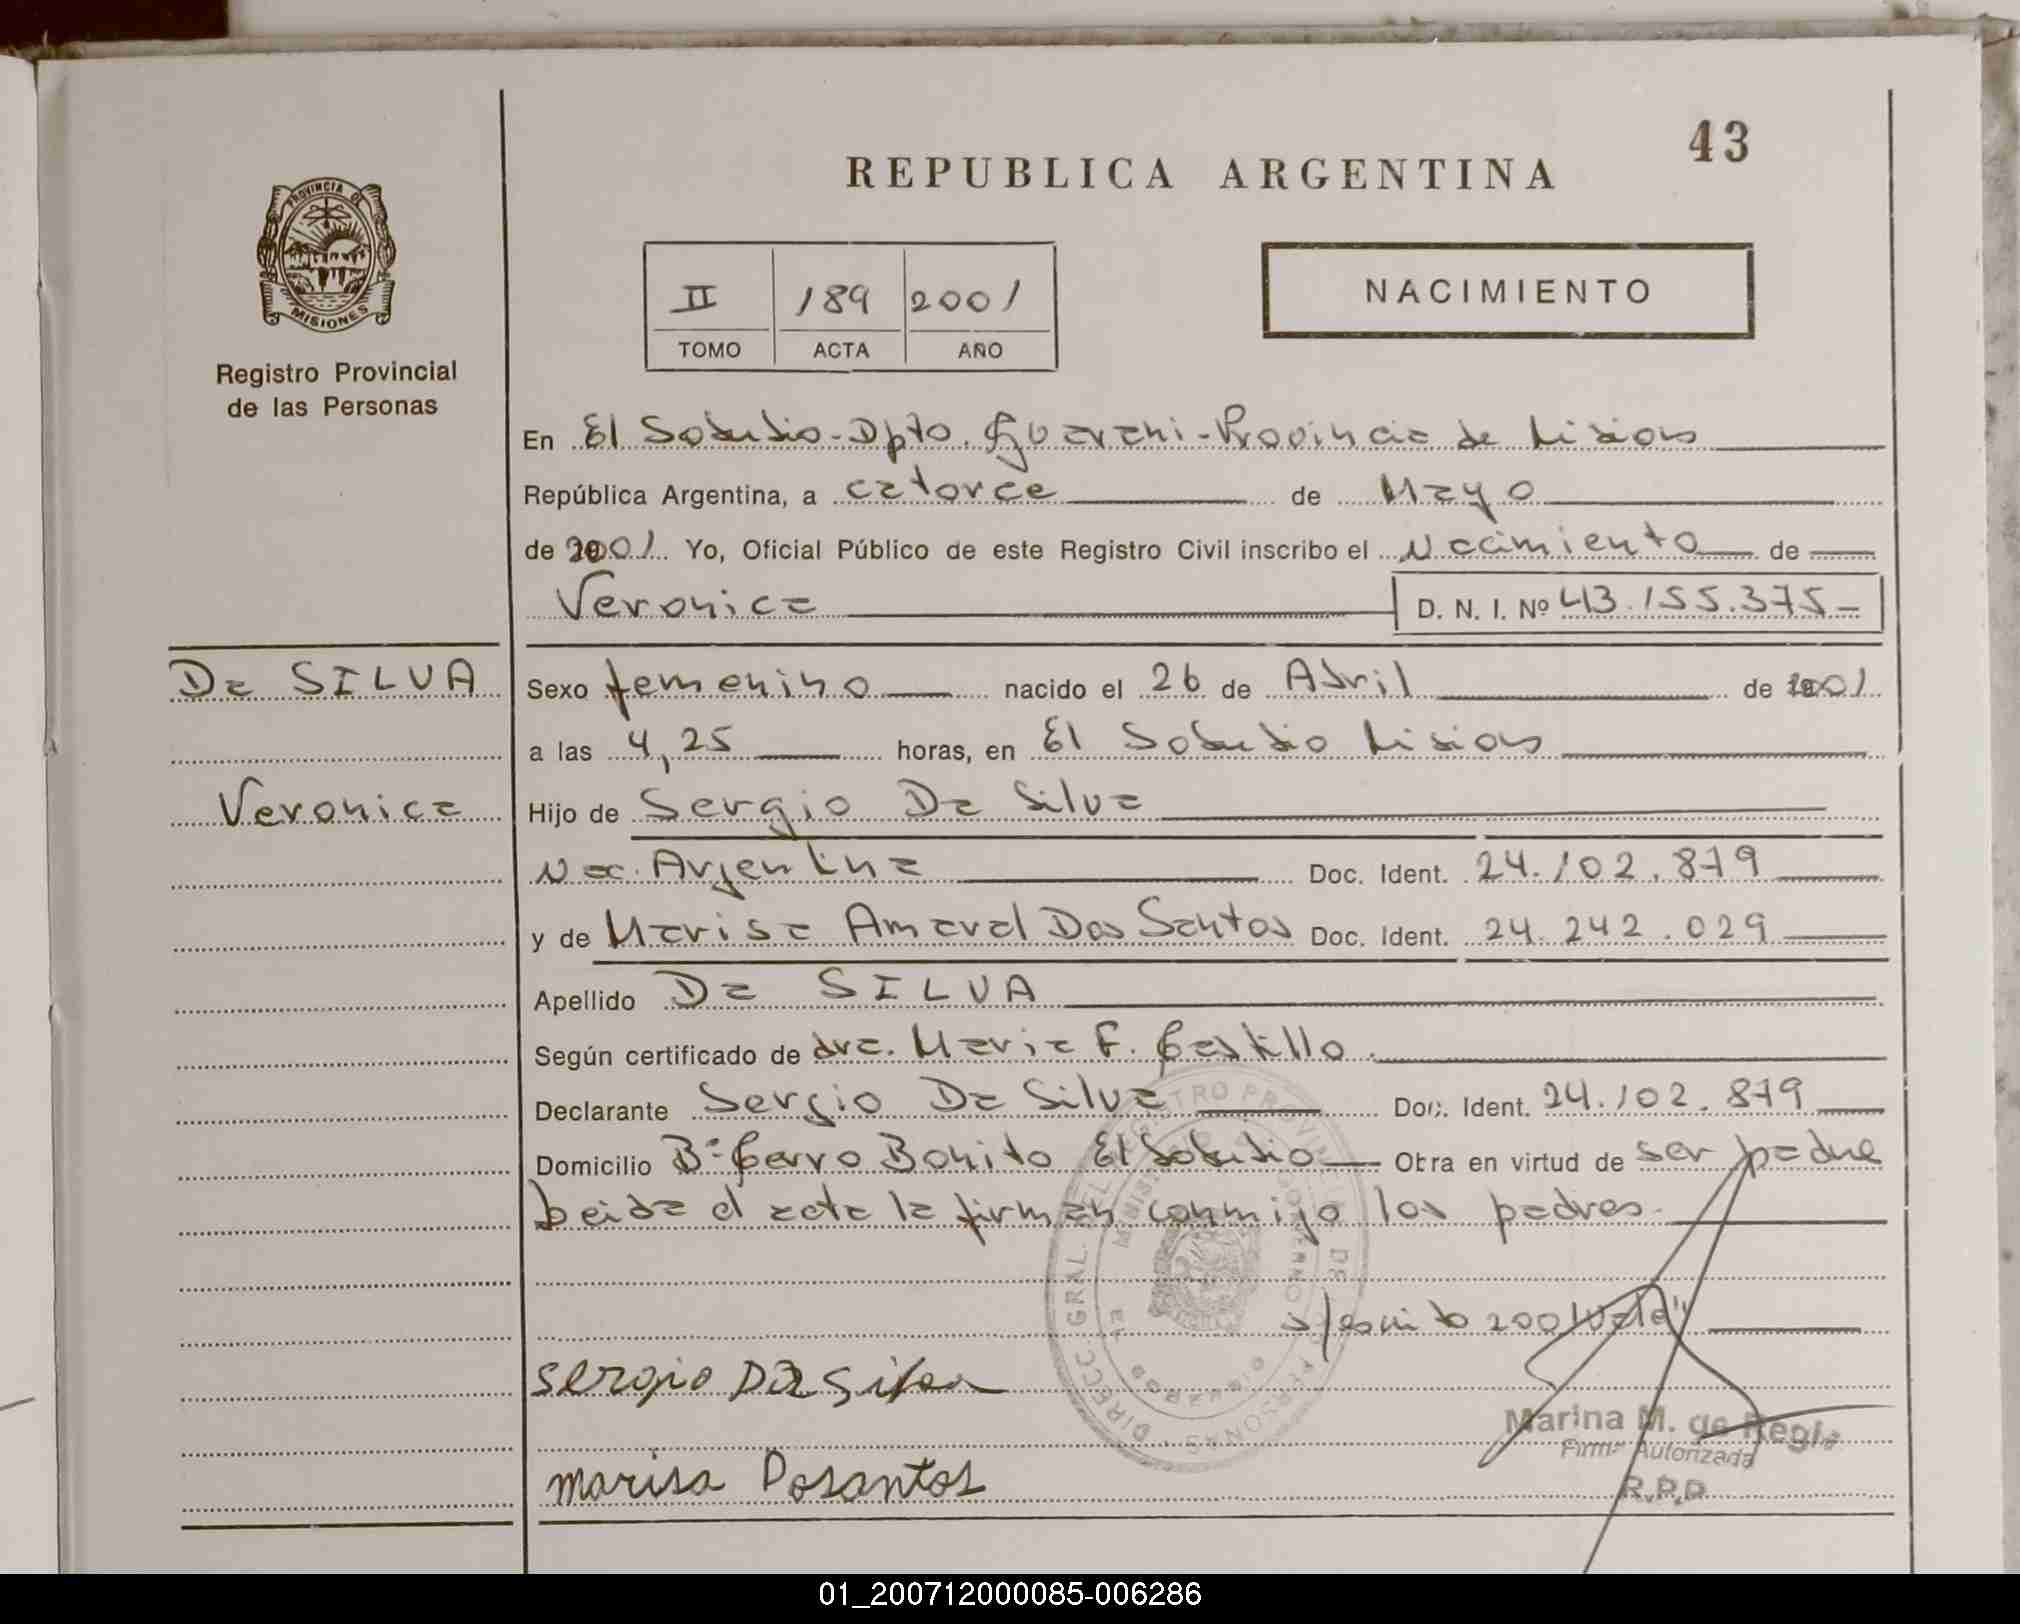 43
REPUBLICA ARGENTINA
PROVINCIA DE
MISIONES
Registro Provincial
de las Personas
II 189 2001
TOMO ACTA AÑO
NACIMIENTO
En El Soberbio - Dpto. Guarani - Provincia de Misiones
República Argentina, a catorce de Mayo
de 2001 Yo, Oficial Público de este Registro Civil inscribo el Nacimiento de
Veronica D. N. I. Nº 43.155.375-
Da SILVA Sexo femenino nacido el 26 de Abril de 2001
a las 4,25 horas, en El Soberbio Misiones
Veronica Hijo de Sergio Da Silva
Nac. Argentina Doc. Ident. 24.102.879
y de Marisa Amaral Dos Santos Doc. Ident. 24.242.029
Apellido Da SILVA
Según certificado de dra. Maria F. Castillo
Declarante Sergio Da Silva Doc. Ident. 24.102.879
Domicilio Bº Cerro Bonito El Soberbio Obra en virtud de ser padre
Leida el acta la firman conmigo los padres
2001 Vale"
sergio Da silva
Marina M. de Regis
Firma Autorizada
marisa Dosantos
R.P.P
DIRECC. GRAL. DEL REGISTRO PROVINCIAL DE PERSONAS
01_200712000085-006286